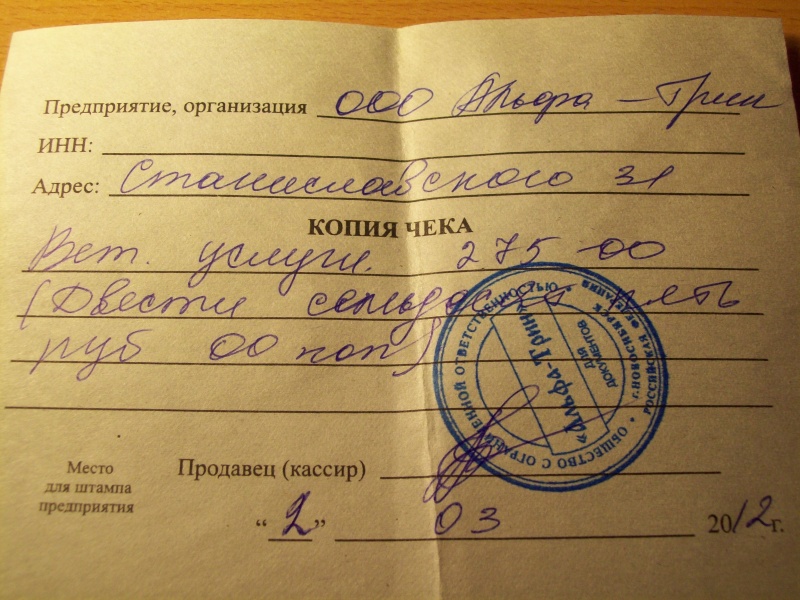 Предприятие, организация ООО Альфа-Грин
ИНН:
Адрес: Станиславского 31
КОПИЯ ЧЕКА
Вет. услуги. 275-00
(Двести семьдесят пять
руб 00 коп)
Место
для штампа
предприятия
Продавец (кассир)
"2" 03 2012г.
ОБЩЕСТВО С ОГРАНИЧЕННОЙ ОТВЕТСТВЕННОСТЬЮ
РОССИЙСКАЯ ФЕДЕРАЦИЯ
г. НОВОСИБИРСК
«Альфа-Грин»
ДЛЯ
ДОКУМЕНТОВ